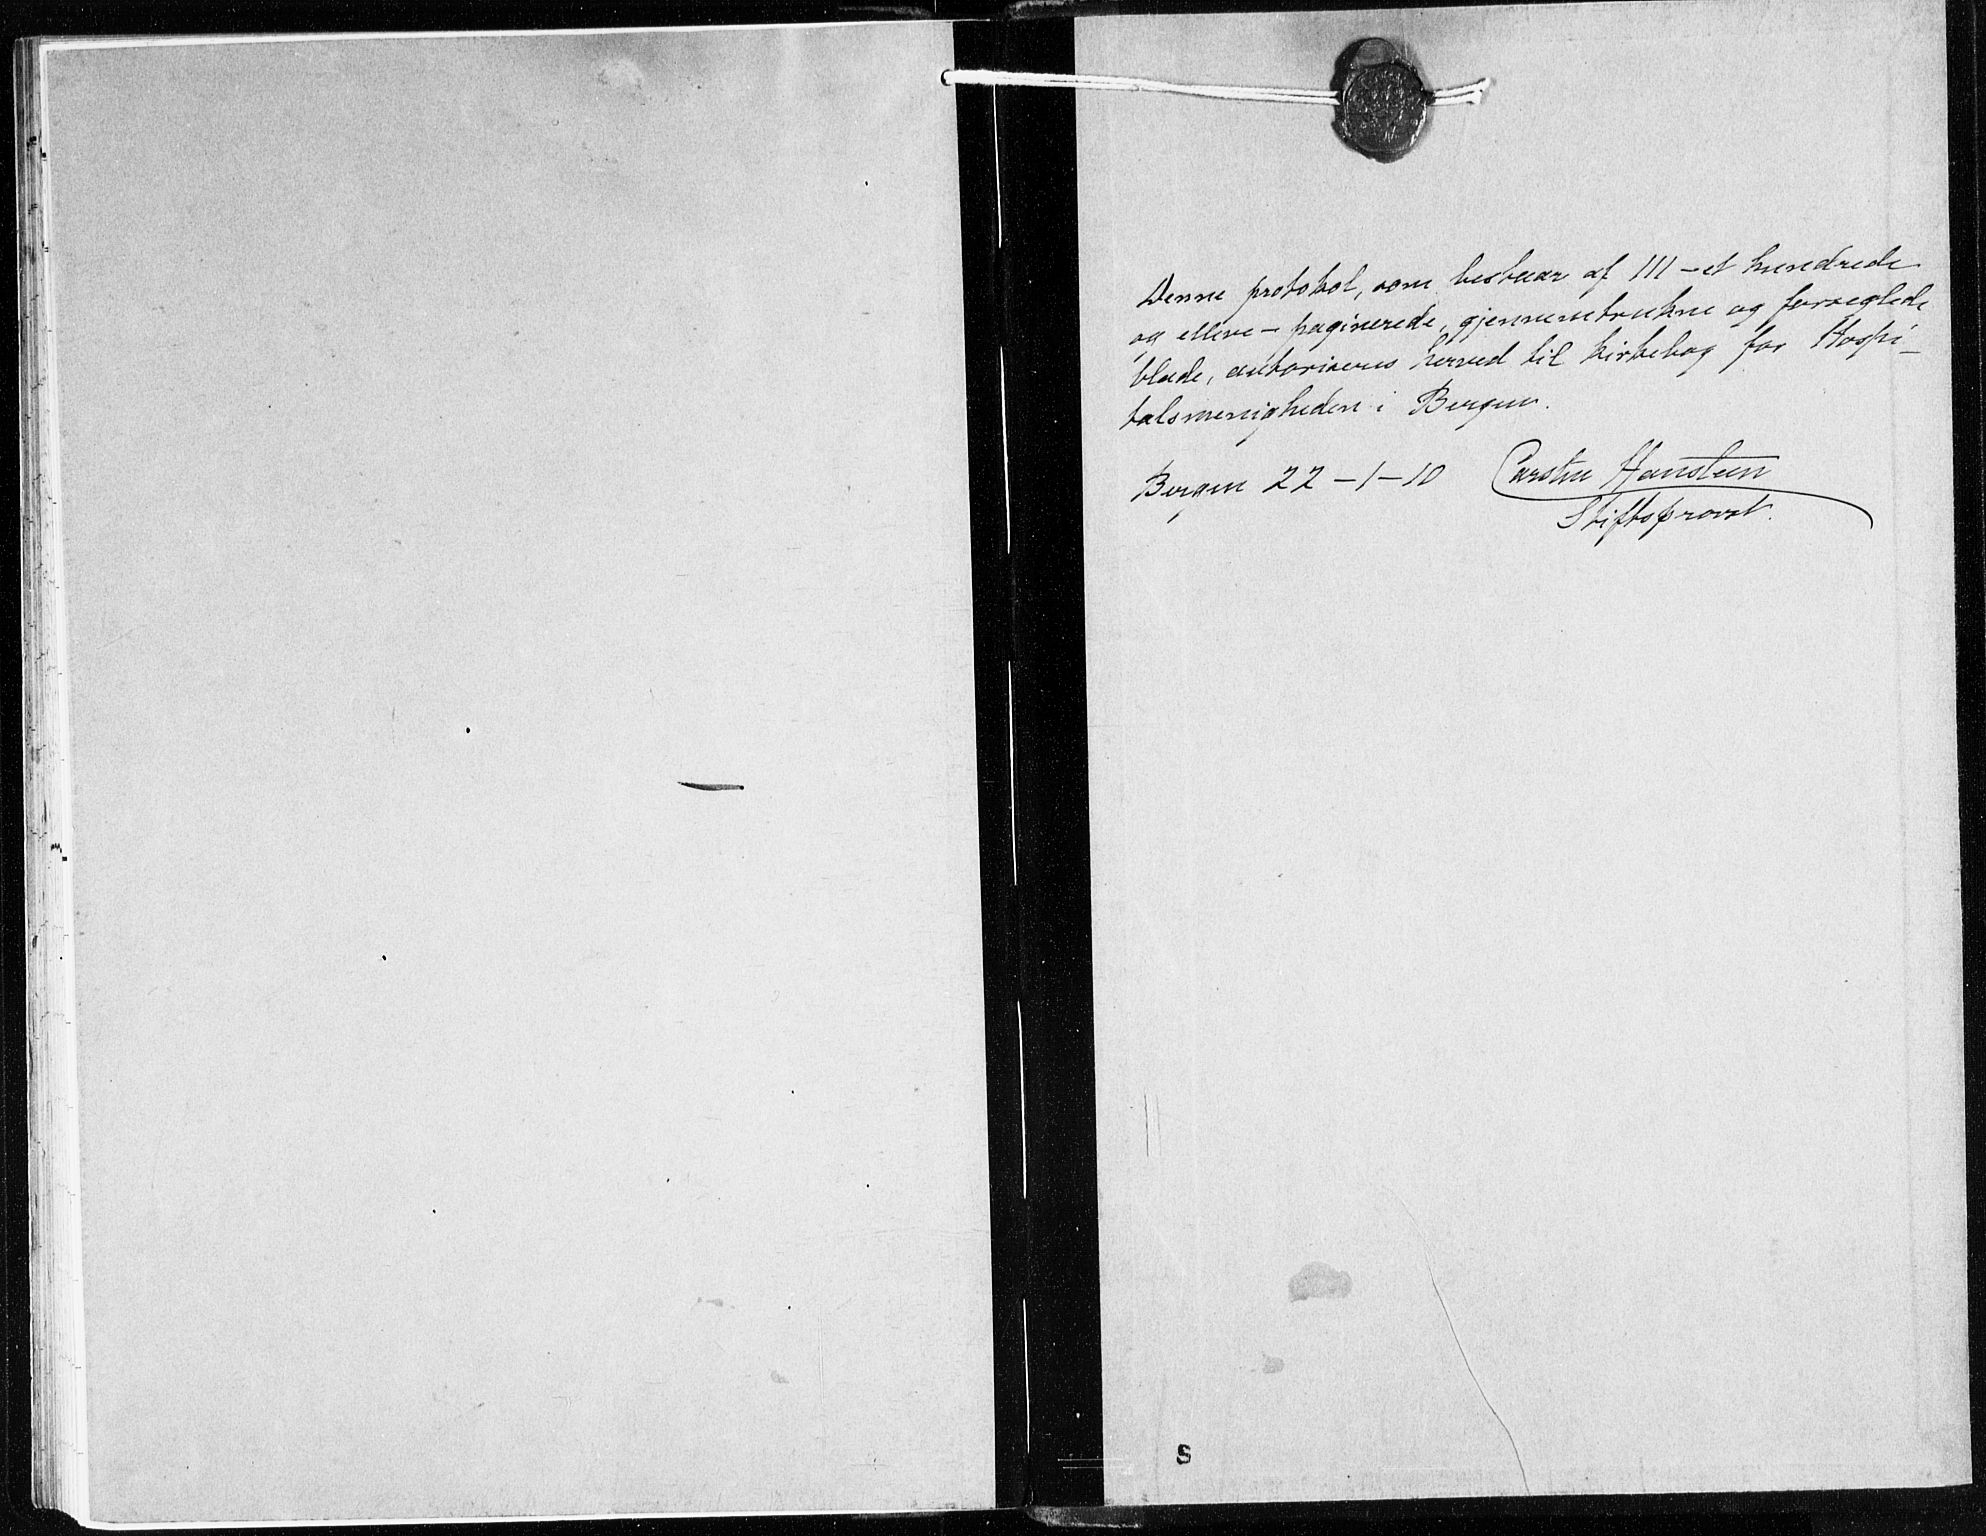 Denne protokol, som bestaar af 111 – et hundrede
og elleve – paginerede, gjennemtrukne og forseglede
blade, autoriseres herved til kirkebog for Hospi–
talsmenigheden i Bergen.
Bergen 22–1–10 Carsten Hansteen
Stiftsprovst.
S